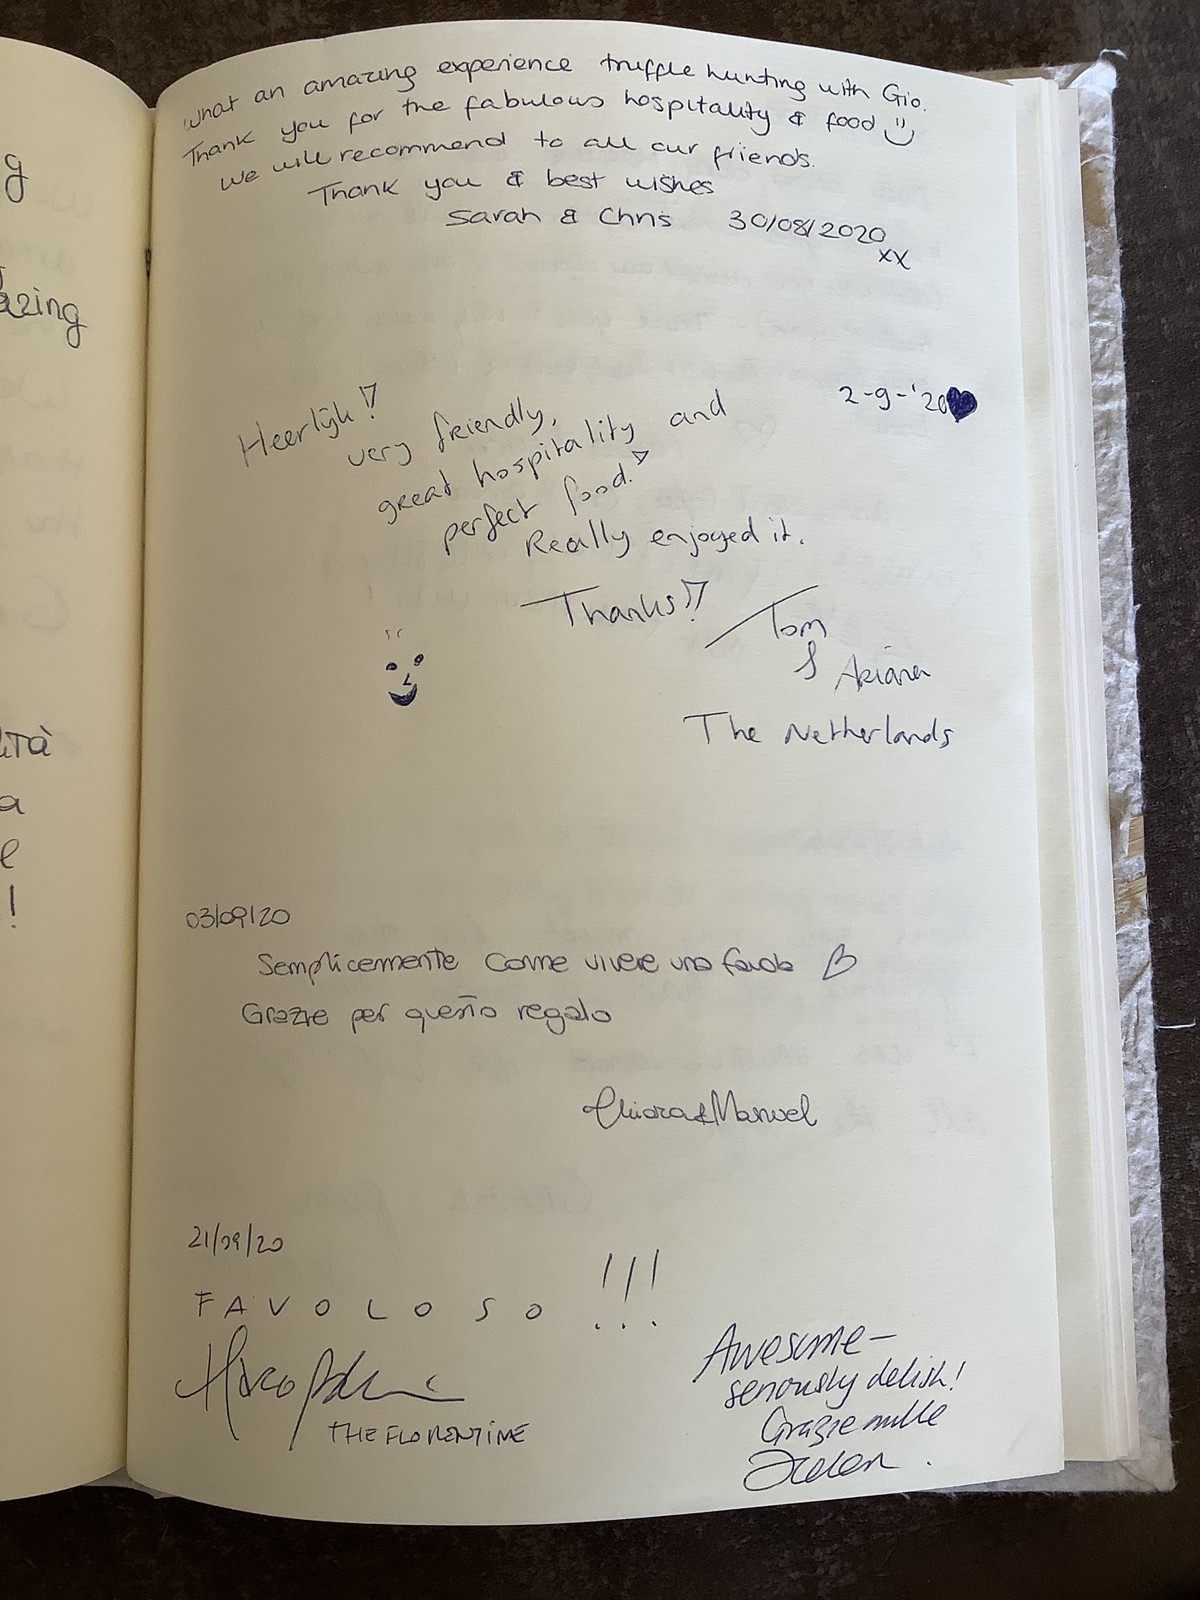 g
azing
lità
a
e
!
What an amazing experience truffle hunting with Gio.
Thank you for the fabulous hospitality & food
We will recommend to all our friends.
Thank you & best wishes
Sarah & Chris 30/08/2020
xx
2-9-'20
Heerlijk!!
very friendly,
great hospitality and
perfect food!
Really enjoyed it.
Thanks!!
Tom
&
Ariana
The Netherlands
03/09/20
Semplicemente come vivere una favola
Grazie per questo regalo
Chiara&Manuel
21/09/20
FAVOLOSO !!!
THE FLORENTINE
Awesome –
seriously delish!
Grazie mille
Helen.